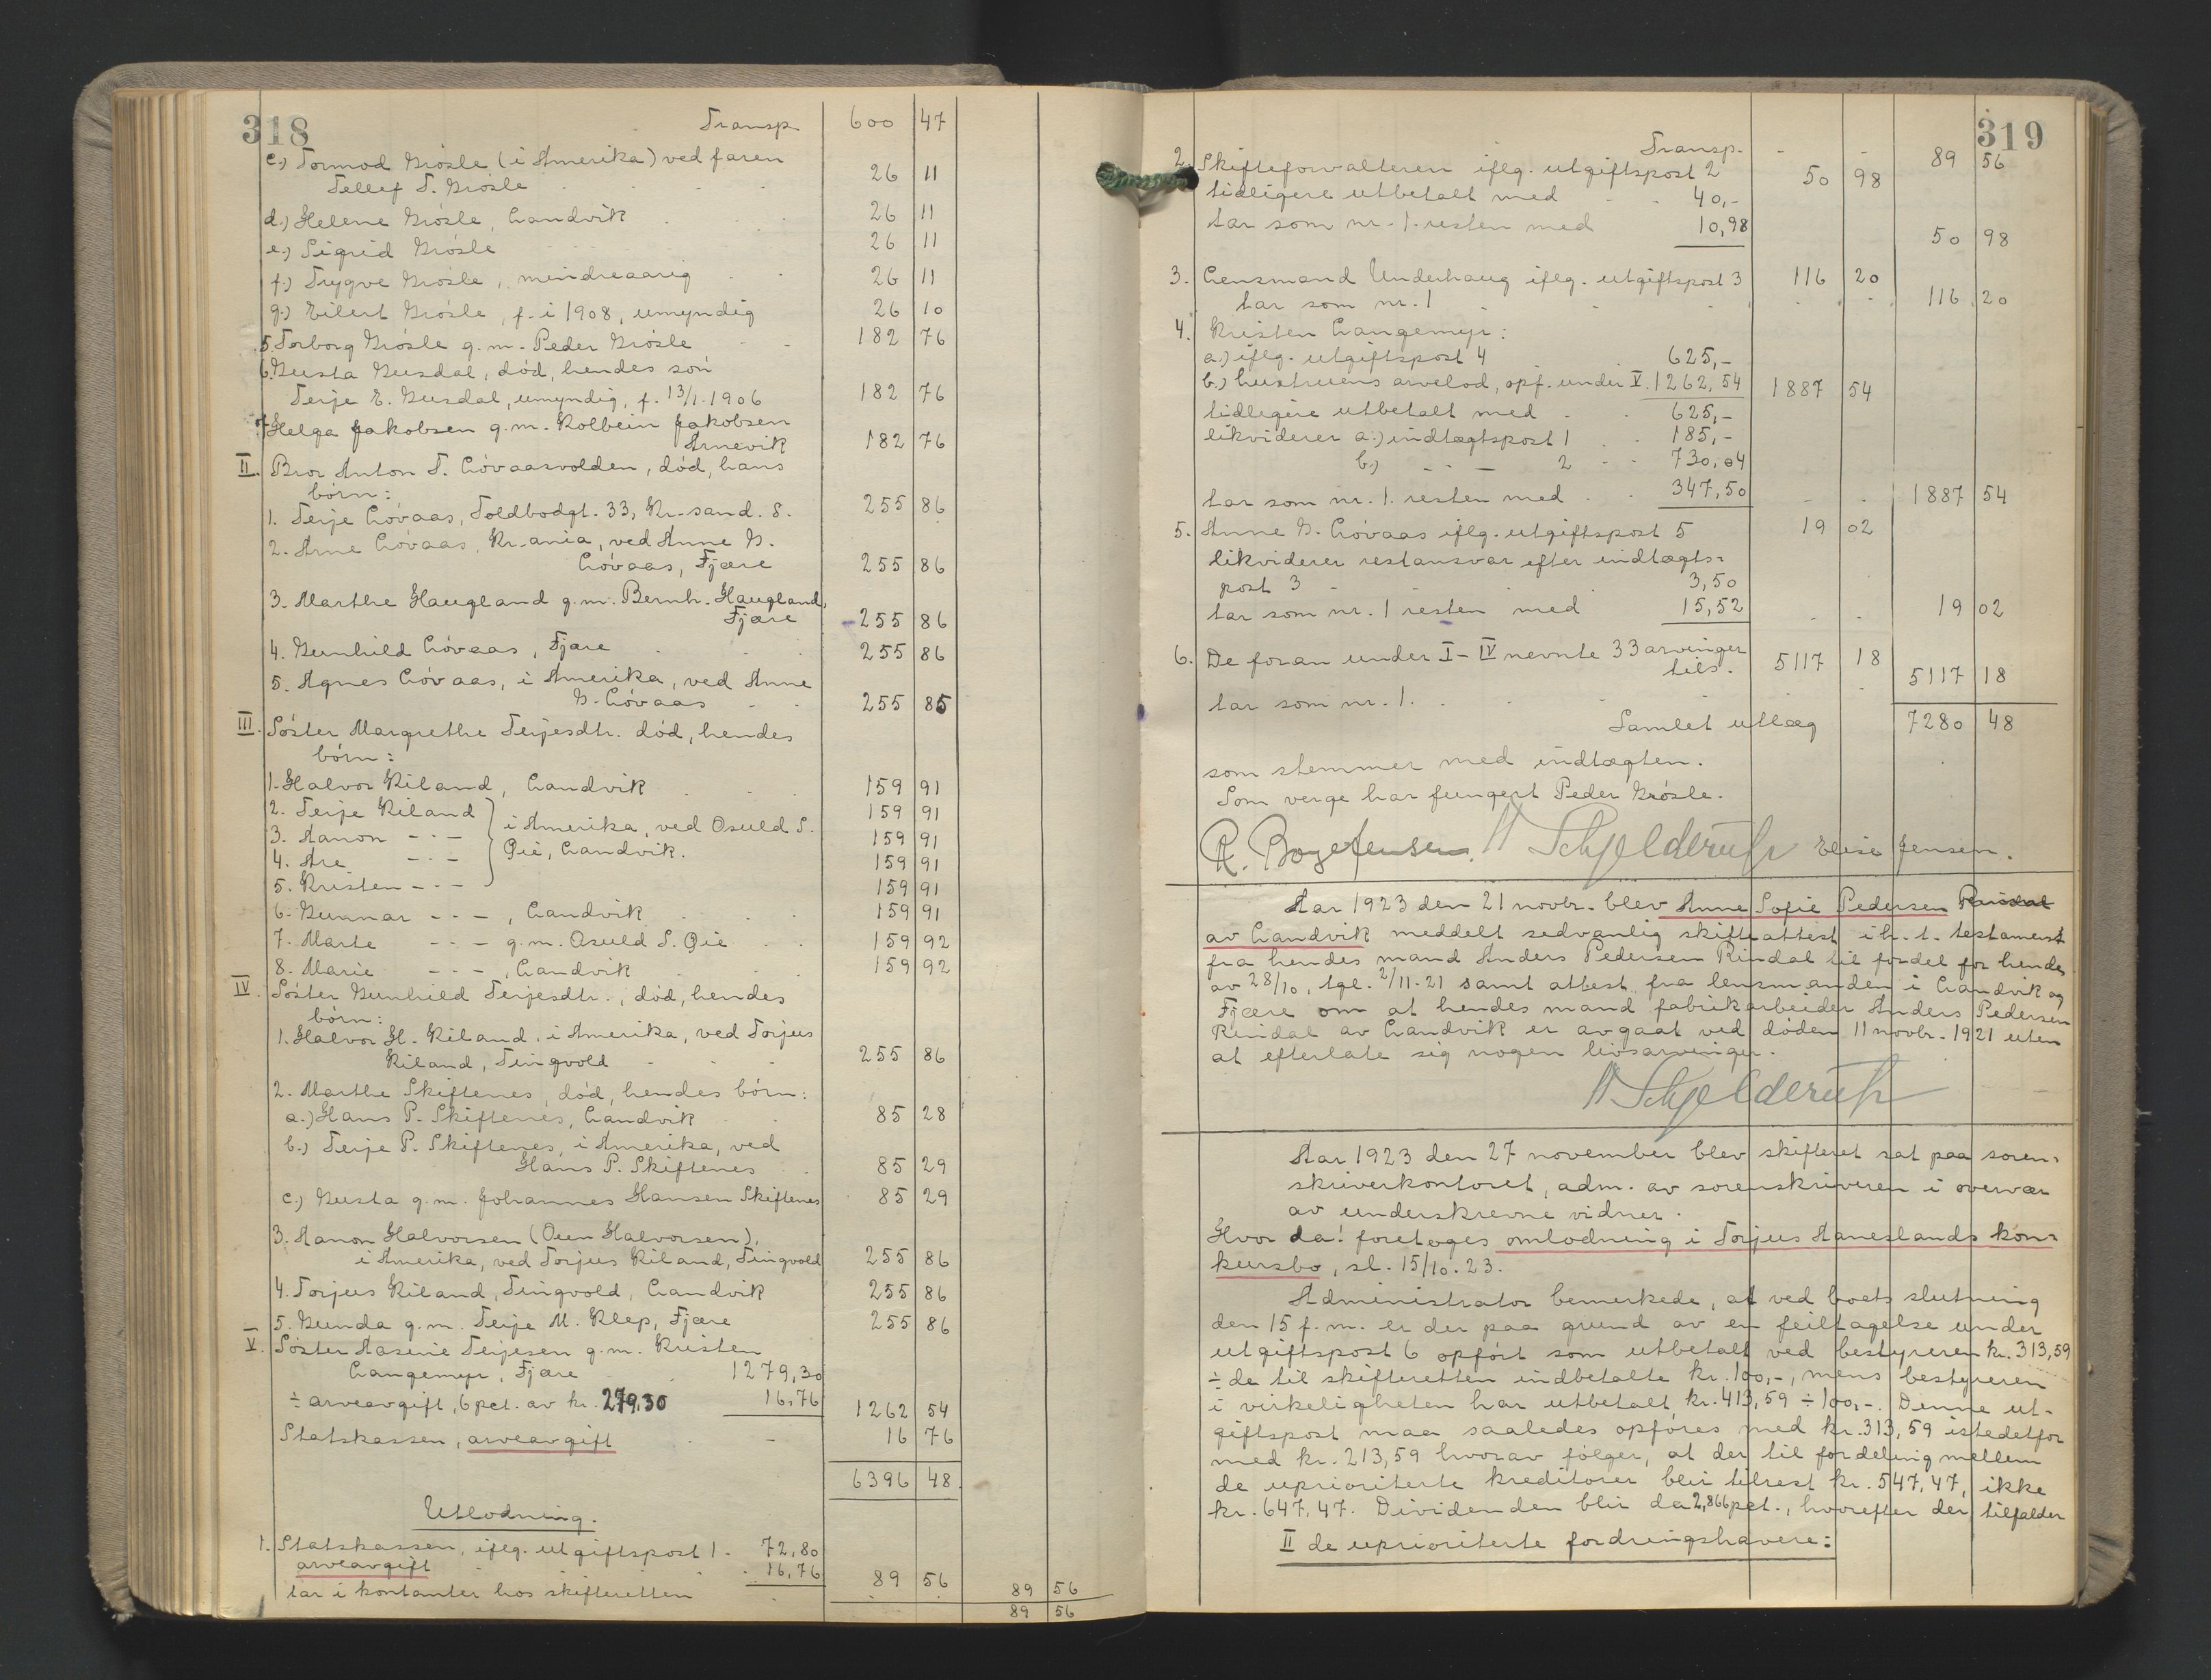 318
Transp. 600 47
c.) Tormod Grösle (i Amerika) ved faren
Tellef T. Grösle 26 11
d.) Helene Grösle, Landvik 26 11
e.) Sigrid Grösle 26 11
f.) Trygve Grösle, mindreaarig 26 11
g.) Eilert Grösle, f. i 1908, umyndig 26 10
5. Torborg Grösle g.m. Peder Grösle 182 76
6. Gusta Gusdal, död, hendes sön
Terje E. Gusdal, umyndig, f. 13/1.1906 182 76
7. Helga Jakobsen g.m. Kolbein Jakobsen
Arnevik 182 76
II. Bror Anton T. Lövaasvolden, död, hans
börn:
1. Terje Lövaas, Toldbodgt. 33, Kr.sand. S. 255 86
2. Arne Lövaas, Kr.ania, ved Anne G.
Lövaas, Fjære 255 86
3. Marthe Haugland g.m. Bernh. Haugland,
Fjære 255 86
4. Gunhild Lövaas, Fjære 255 86
5. Agnes Lövaas, i Amerika, ved Anne
G. Lövaas 255 85
III. Söster Margrethe Terjesdtr. död, hendes
börn:
1. Halvor Riland, Landvik 159 91
2. Terje Riland } i Amerika, ved Osuld S. 159 91
3. Aanon - " - 159 91
4. Are - " - Öie, Landvik. 159 91
5. Kristen - " - 159 91
6. Gunnar - " - , Landvik 159 91
7. Marte - " - g.m. Osuld S. Öie 159 92
8. Marie - " - , Landvik 159 92
IV. Söster Gunhild Terjesdtr., död, hendes
börn:
1. Halvor H. Riland, i Amerika, ved Torjus
Riland, Tingvold 255 86
2. Marthe Skiftenes, död, hendes börn:
a.) Hans P. Skiftenes, Landvik 85 28
b.) Terje P. Skiftenes, i Amerika, ved
Hans P. Skiftenes 85 29
c.) Gusta g.m. Johannes Hansen Skiftenes 85 29
3. Aanon Halvorsen (Oen Halvorsen),
i Amerika, ved Torjus Riland, Tingvold 255 86
4. Torjus Riland, Tingvold, Landvik 255 86
5. Gunda g.m. Terje M. Klep, Fjære 255 86
V. Söster Aasine Terjesen g.m. Kristen
Langemyr, Fjære 1279,30
÷ arveavgift, 6 pct. av kr. 279,30 16,76 1262 54
Statskassen, arveavgift 16 76
6396 48
Utlodning.
1. Statskassen, iflg. utgiftspost 1. 72,80
arveavgift 16,76 89 56
tar i kontanter hos skifteretten 89 56
89 56
319
Transp. 89 56
2. Skifteforvalteren iflg. utgiftspost 2 50 98
tidligere utbetalt med 40,-
tar som nr. 1. resten med 10,98 50 98
3. Lensmand Underhaug iflg. utgiftspost 3 116 20
tar som nr. 1 116 20
4. Kristen Langemyr:
a.) iflg. utgiftspost 4 625,-
b.) hustruens arvelod, opf. under V. 1262,54 1887 54
tidligere utbetalt med 625,-
likviderer a.) indtægtspost 1 185,-
b.) - " - 2 730,04
tar som nr. 1. resten med 347,50 1887 54
5. Anne G. Lövaas iflg. utgiftspost 5 19 02
likviderer restansvar efter indtægts-
post 3 3,50
tar som nr. 1 resten med 15,52 19 02
6. De foran under I - IV nevnte 33 arvinger
tils. 5117 18
tar som nr. 1. 5117 18
Samlet utlæg 7280 48
som stemmer med indtægten.
Som verge har fungert Peder Grösle.
R. Boye Jensen. N Schjelderup Elise Jensen.
Aar 1923 den 21 novbr. blev Anne Sofie Pedersen Rindal
av Landvik meddelt sedvanlig skifteattest i h. t. testament
fra hendes mand Anders Pedersen Rindal til fordel for hende
av 28/10, tgl. 2/11-21 samt attest fra lensmanden i Landvik og
Fjære om at hendes mand fabrikarbeider Anders Pedersen
Rindal av Landvik er avgaat ved döden 11 novbr. 1921 uten
at efterlate sig nogen livsarvinger.
N Schjelderup
Aar 1923 den 27 november blev skifteret sat paa soren-
skriverkontoret, adm. av sorenskriveren i overvær
av underskrevne vidner.
Hvor da: foretoges omlodning i Torjus Aaneslands kon-
kursbo, sl. 15/10. 23.
Administrator bemerkede, at ved boets slutning
den 15 f. m. er der paa grund av en feiltagelse under
utgiftspost 6 opfört som utbetalt ved bestyreren kr. 313,59
÷ de til skifteretten indbetalte kr. 100,-, mens bestyreren
i virkeligheten har utbetalt kr. 413,59 ÷ 100,-. Denne ut-
giftspost maa saaledes opföres med kr. 313,59 istedetfor
med kr. 213,59 hvorav fölger, at der til fordeling mellem
de uprioriterte kreditorer blir tilrest kr. 547,47, ikke
kr. 647,47. Dividenden blir da 2,866 pct., hvorefter der tilfalder
II de uprioriterte fordringshavere: